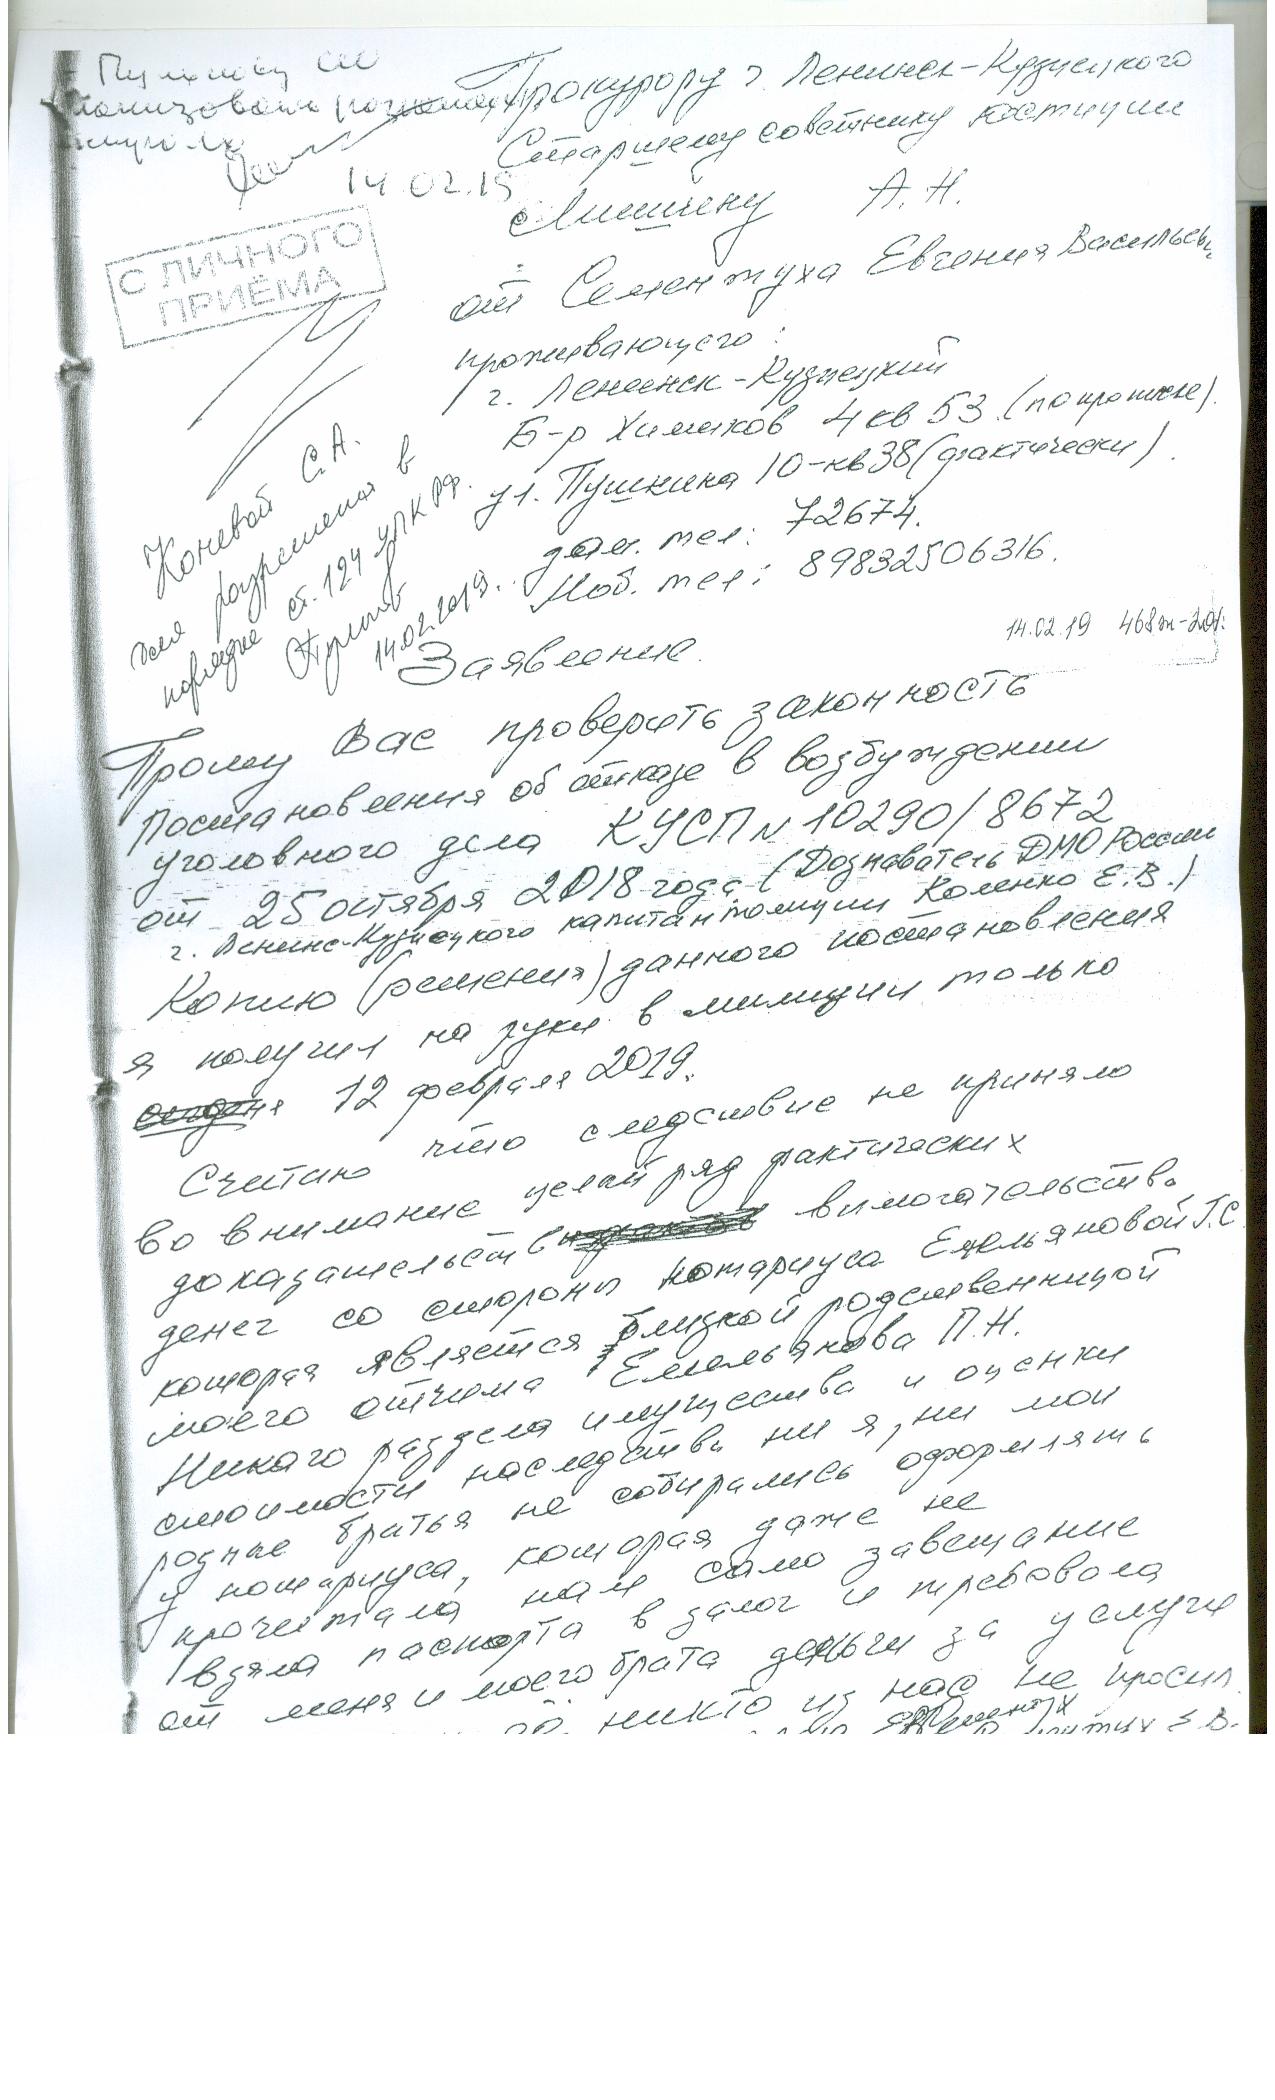 Прокурору г. Ленинск-Кузнецкого
Старшему советнику юстиции
А. Н.
14.02.19
С ЛИЧНОГО
ПРИЁМА
от Сементуха Евгения Васильеви
проживающего:
г. Ленинск-Кузнецкий
Б-р Химиков 4 кв 53 (по прописке).
ул. Пушкина 10-кв 38 (фактически).
дом. тел: 72674.
Моб. тел: 89832506316.
Коневой С.А.
для разрешения в
порядке ст. 124 УПК РФ.
14.02.2019.
14.02.19 468ж-
Заявление.
Прошу Вас проверить законность
Постановления об отказе в возбуждении
уголовного дела КУСП № 10290/8672
от 25 октября 2018 года (Дознаватель ДМО России
г. Ленинс-Кузнецкого капитан полиции Коленко Е.В.)
Копию (решения) данного постановления
я получил на руки в милиции только
12 февраля 2019.
Считаю что следствие не приняло
во внимание целый ряд фактических
доказательств вымогательства
денег со стороны нотариуса Емельяновой Г.С.
которая является близкой родственницой
моего отчима Емельянова П.Н.
Никаго раздела имущества и оценки
стоимости наследства ни я, ни мои
родные братья не собирались оформлять
у нотариуса, которая даже не
прочитала нам само завещание
взяла паспорта в залог и требовала
от меня и моего брата деньги за услуги
никто из нас не просил.